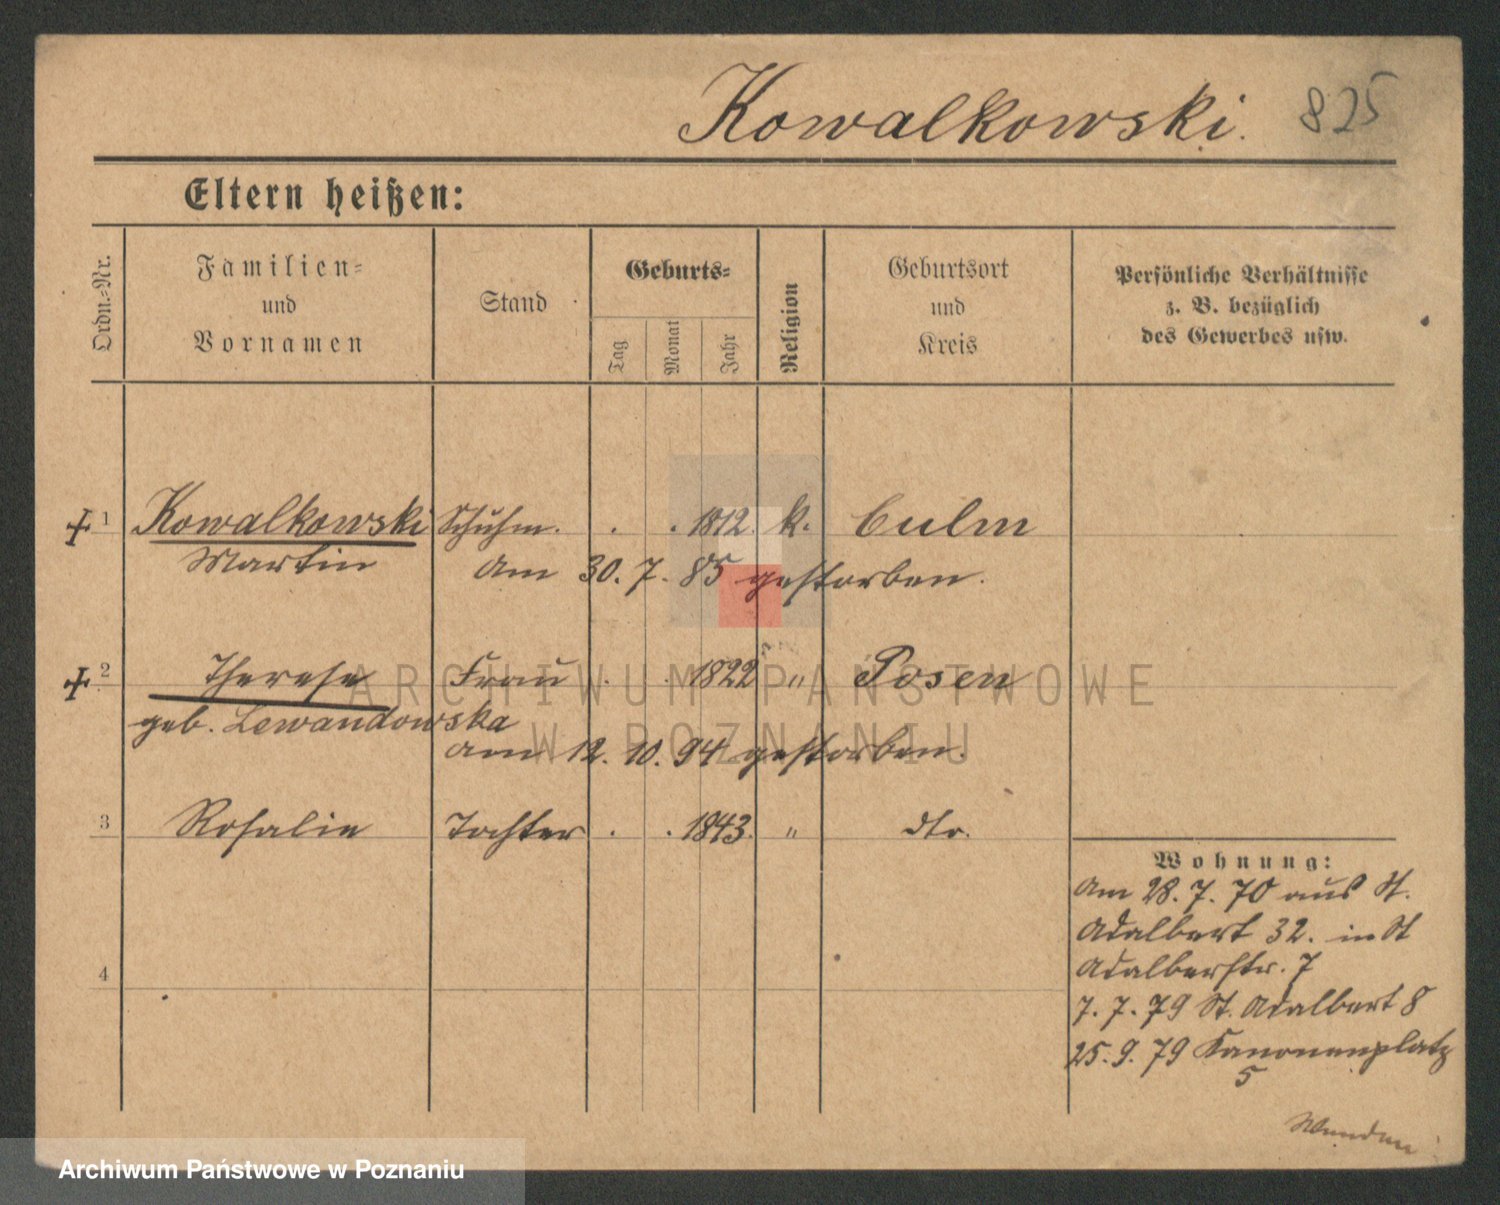 Kowalkowski. 825
Eltern heißen:
Ordn.-Nr.
Familien-
und
Vornamen
Stand
Geburts-
Tag
Monat
Jahr
Religion
Geburtsort
und
Kreis
Persönliche Verhältnisse
z. B. bezüglich
des Gewerbes usw.
+ 1 Kowalkowski Schuhm. . . 1812. k. Culm
Martin am 30. 7. 85 gestorben.
+ 2 Therese Frau . . 1822 " Posen
geb. Lewandowska
am 12. 10. 94 gestorben.
3 Rosalie Tochter . . 1843. " dto.
4
Wohnung:
Am 28. 7. 70 aus St.
Adalbert 32. in St
Adalberstr. 7
7. 7. 79 St. Adalbert 8
25. 9. 79 Kanonenplatz
5
ARCHIWUM PAŃSTWOWE
W POZNANIU
Archiwum Państwowe w Poznaniu